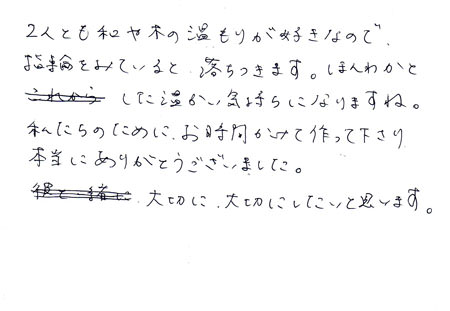 2人とも和や木の温もりが好きなので、
指輪をみていると、落ちつきます。ほんわかと
した温かい気持ちになりますね。
私たちのために、お時間かけて作って下さり
本当にありがとうございました。
大切に、大切にしたいと思います。